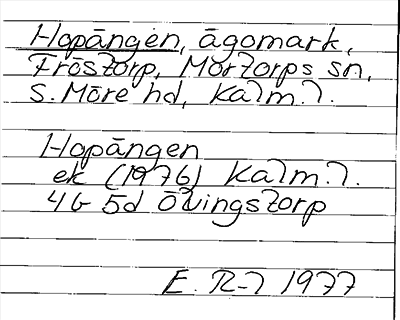 Hopängen, ägomark,
Fröstorp, Mortorps sn,
S. Möre hd, Kalm. l.
Hopängen
ek (1976) Kalm. l.
4G 5d Övingstorp
E. R-l 1977